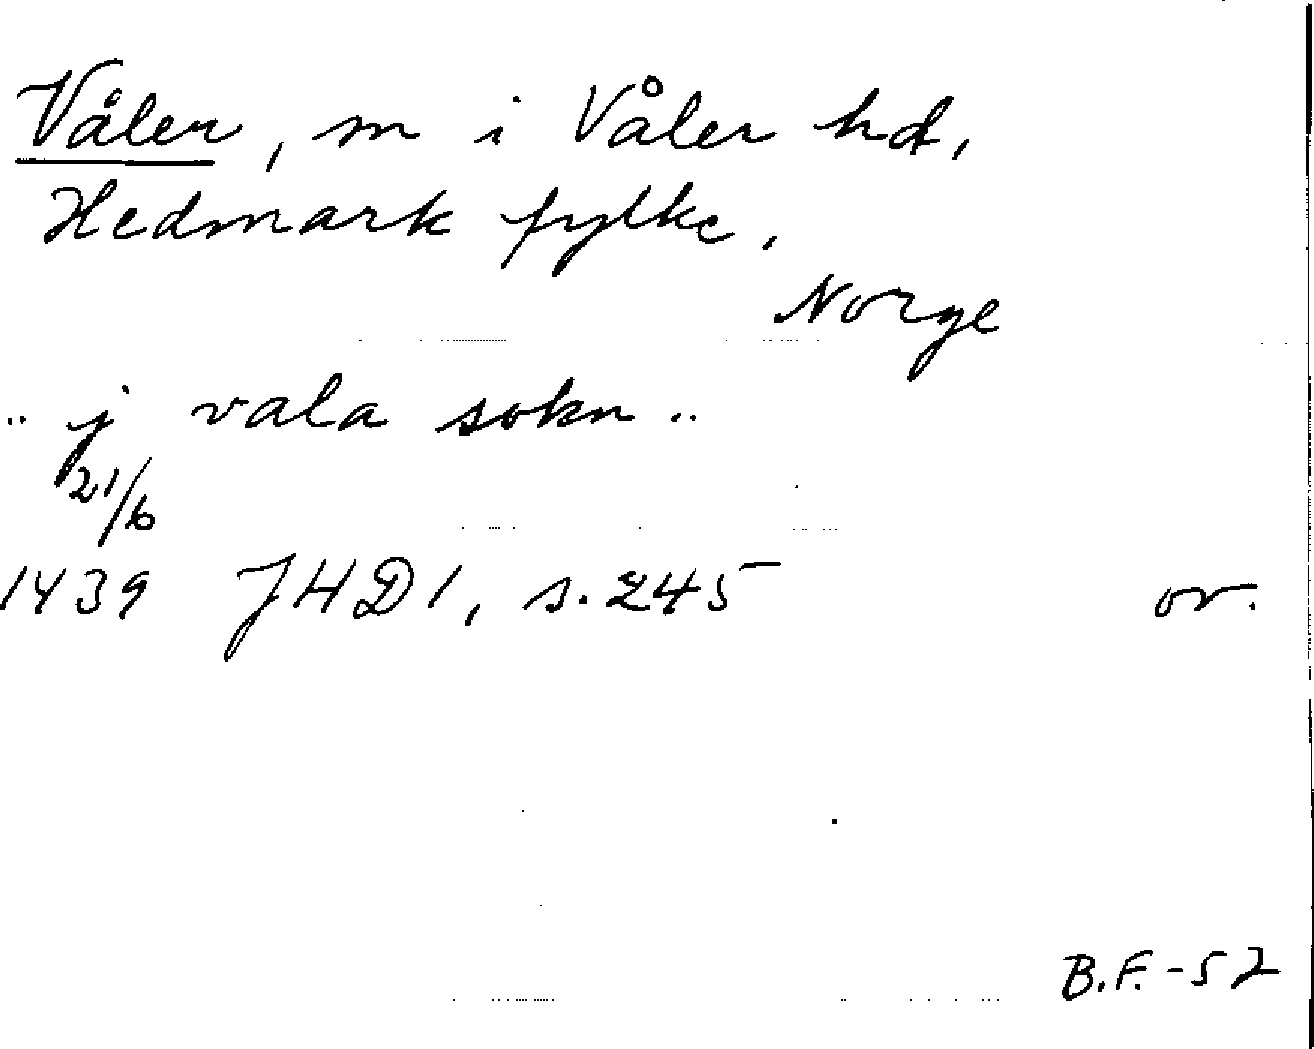 Våler, m i Våler hd,
Hedmark fylke.
Norge
.. j vala sokn ..
21/6
1439 JHD 1, s. 245 or.
B.F. -52